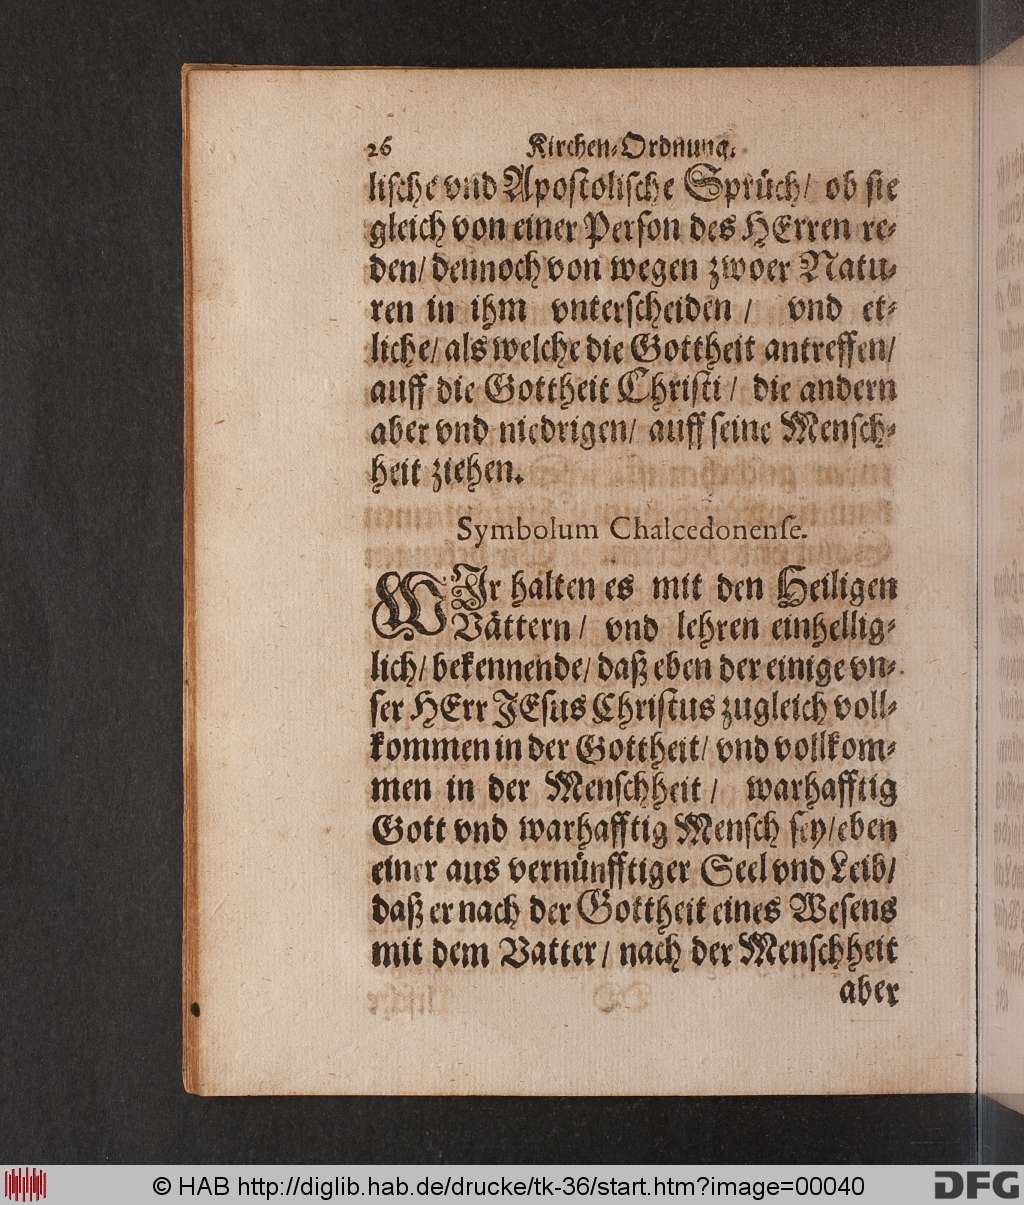 26 Kirchen-Ordnung.
lische vnd Apostolische Sprüch/ ob sie
gleich von einer Person des HErren re-
den/ dennoch von wegen zwoer Natu-
ren in ihm vnterscheiden / vnd et-
liche/ als welche die Gottheit antreffen/
auff die Gottheit Christi / die andern
aber vnd niedrigen/ auff seine Mensch-
heit ziehen.
Symbolum Chalcedonense.
WIr halten es mit den Heiligen
Vättern / vnd lehren einhellig-
lich/ bekennende/ daß eben der einige vn-
ser HErr JEsus Christus zugleich voll-
kommen in der Gottheit/ vnd vollkom-
men in der Menschheit / warhafftig
Gott vnd warhafftig Mensch sey/ eben
einer aus vernünfftiger Seel vnd Leib/
daß er nach der Gottheit eines Wesens
mit dem Vatter / nach der Menschheit
aber
© HAB http://diglib.hab.de/drucke/tk-36/start.htm?image=00040
DFG